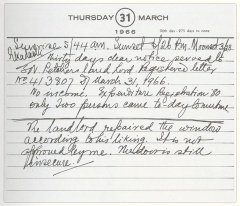 THURSDAY 31 MARCH
1966
90th day - 275 days to come
Sunrise 5/44 am. Sunset 6/26 Pm. Moonset 3/28
Thirty days clear notice served to
landlord Registered letter
No 413807 31 March, 1966.
No income. Expenditure Registration 80
only two persons came to-day
The landlord repaired the windows
according to his liking. It is not
approved by me. The door is still
insecure.